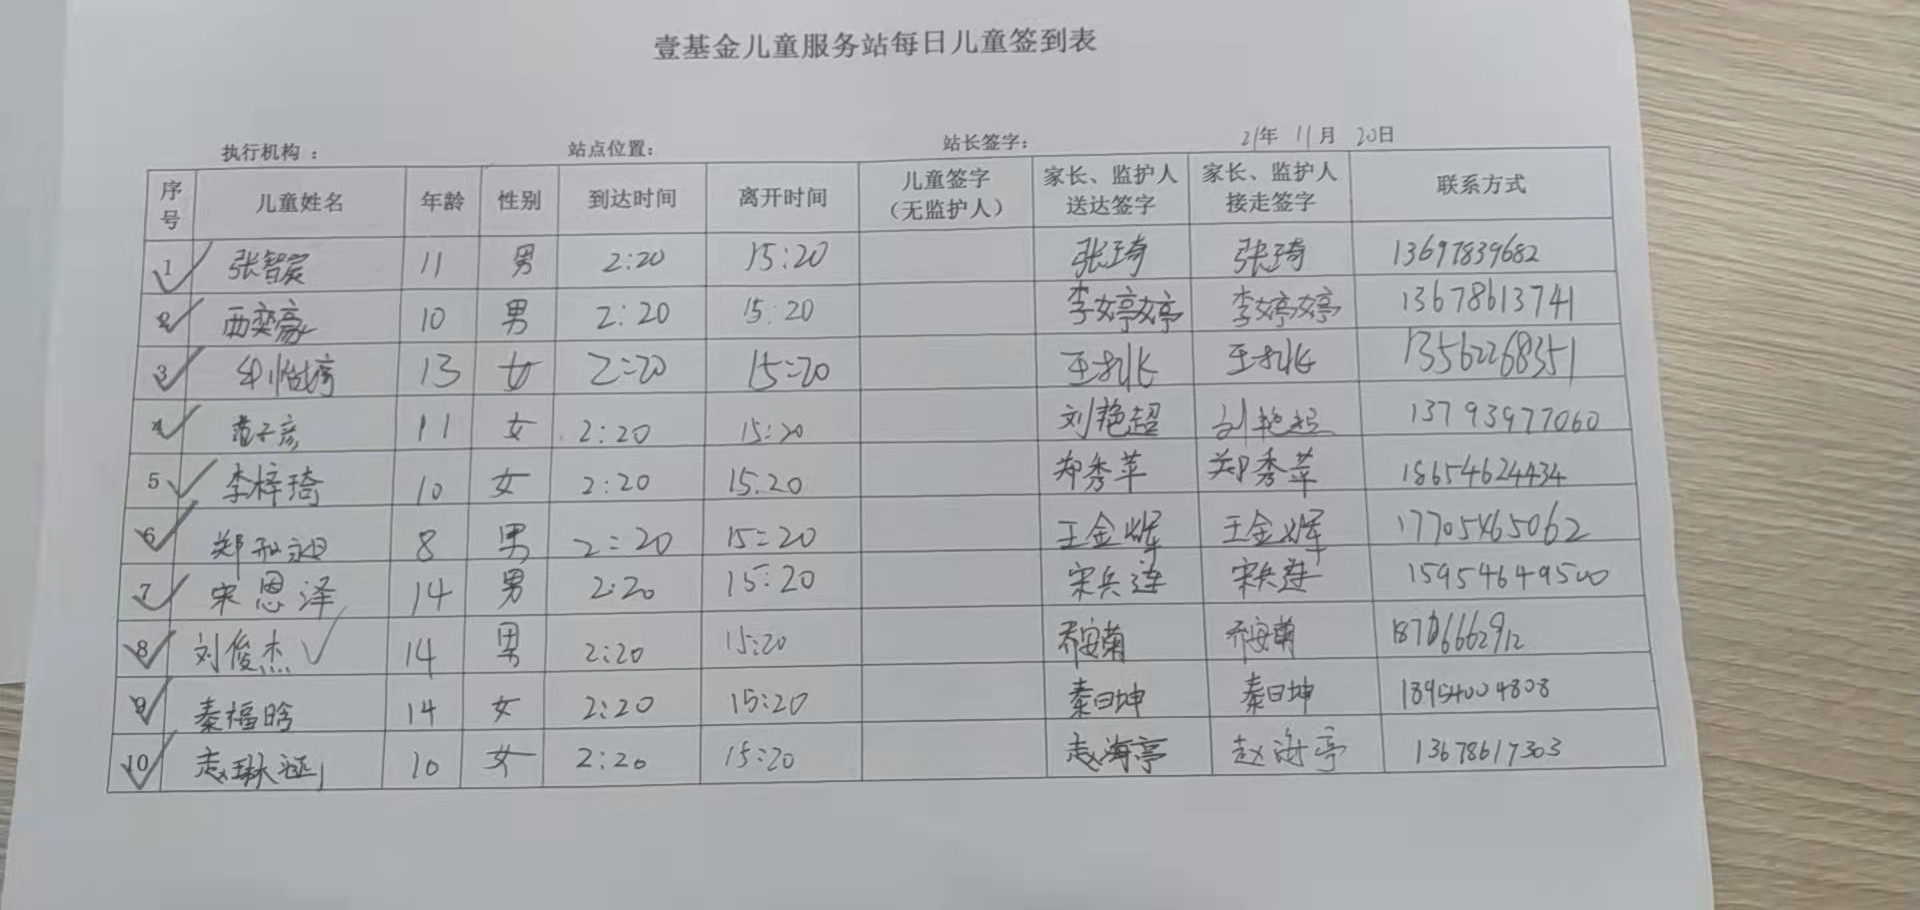 壹基金儿童服务站每日儿童签到表
执行机构： 站点位置： 站长签字： 21年 11月 20日
序号 儿童姓名 年龄 性别 到达时间 离开时间 儿童签字（无监护人） 家长、监护人送达签字 家长、监护人接走签字 联系方式
1 张智宸 11 男 2:20 15:20 张琦 张琦 13697839682
2 西奕豪 10 男 2:20 15:20 李婷婷 李婷婷 13678613741
3 13 女 2:20 15:20 13562268351
4 范子彦 11 女 2:20 15:20 刘艳超 刘艳超 13793977060
5 李梓琦 10 女 2:20 15:20 郑秀苹 郑秀苹 18654624434
6 郑 8 男 2:20 15:20 王金辉 王金辉 17705465062
7 宋恩泽 14 男 2:20 15:20 宋兵连 宋兵连 15954649500
8 刘俊杰 14 男 2:20 15:20 乔安菊 乔安菊 18706662912
9 秦福晗 14 女 2:20 15:20 秦曰坤 秦曰坤 18954004808
10 赵琳涵 10 女 2:20 15:20 赵海亭 赵海亭 13678617303